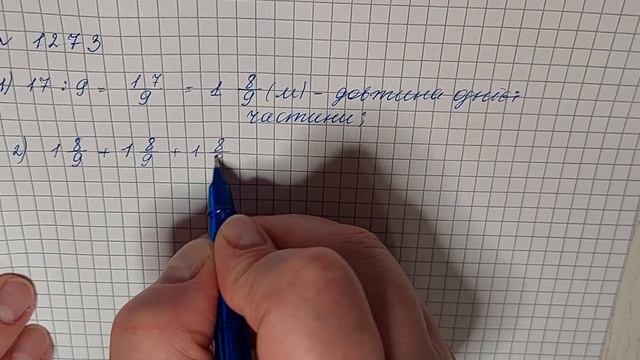 № 1273
1) 17 : 9 = 17/9 = 1 8/9 (м) - довжина однієї
частини;
2) 1 8/9 + 1 8/9 + 1 8/9